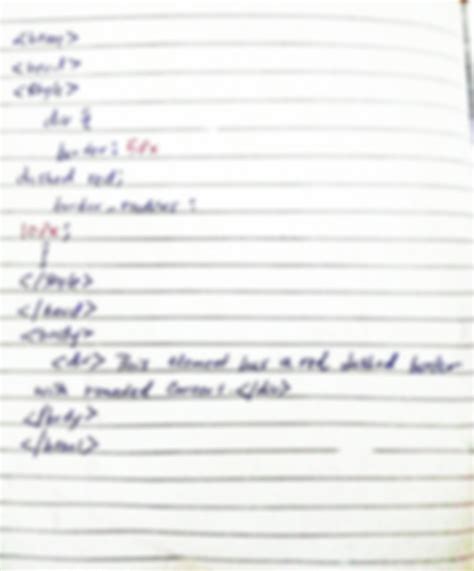 <html>
<head>
<style>
div {
border: 5px
dashed red;
border-radius:
10px;
}
</style>
</head>
<body>
<div> This element has a red dashed border
with rounded corners.</div>
</body>
</html>